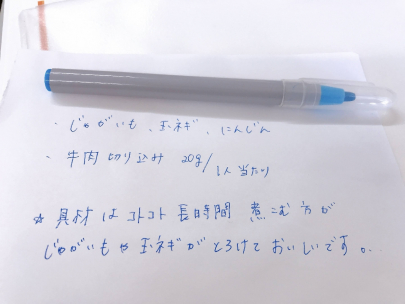 ・じゃがいも、玉ネギ、にんじん
・牛肉切り込み 20g/1人当たり
☆具材はコトコト長時間煮こむ方が
じゃがいもや玉ネギがとろけておいしいです。